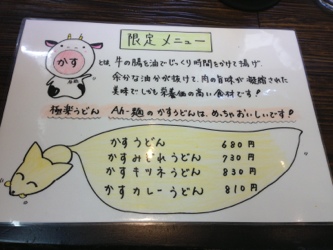 限定メニュー
かす とは、牛の腸を油でじっくり時間をかけて揚げ、
余分な油分が抜けて、肉の旨味が凝縮された
美味でしかも栄養価の高い食材です!
極楽うどん Ah-麺のかすうどんは、めっちゃおいしいです!
かすうどん 680円
かすみぞれうどん 730円
かすキツネうどん 830円
かすカレーうどん 810円